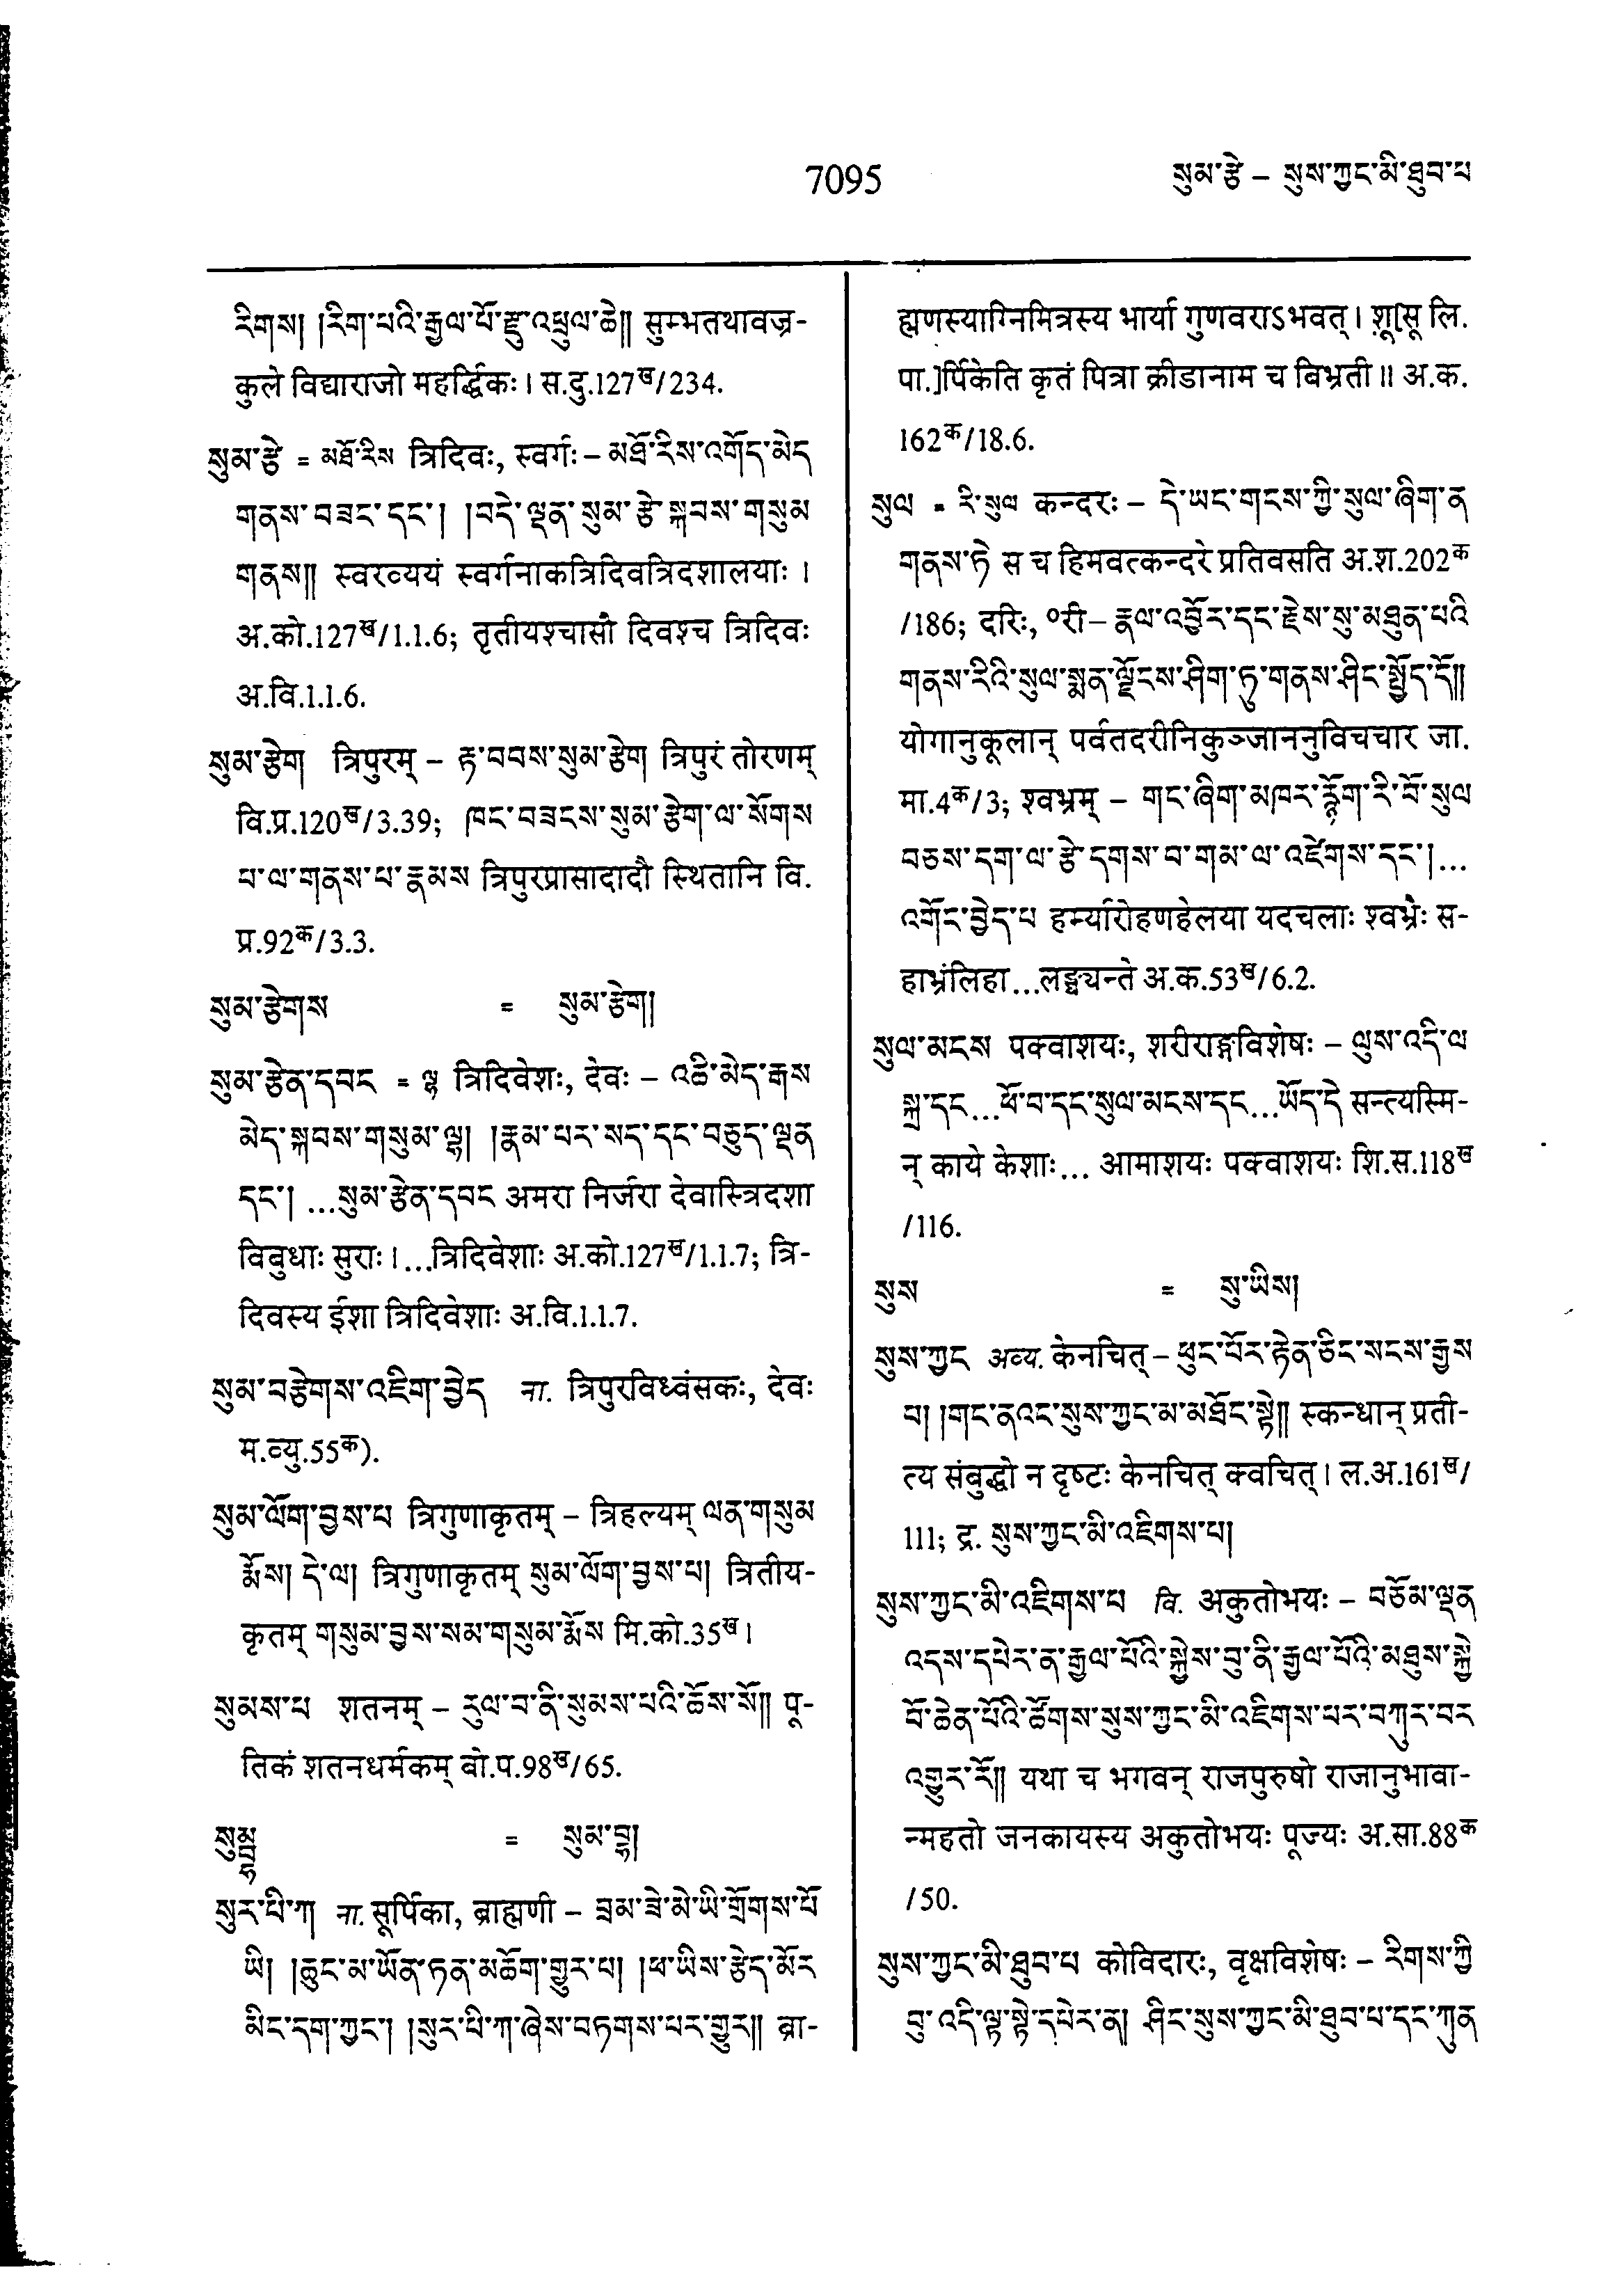 7095
སུམ་རྩེ – སུས་ཀྱང་མི་ཐུབ་པ
རིགས། །རིག་པའི་རྒྱལ་པོ་རྫུ་འཕྲུལ་ཆེ།། सुम्भतथावज्र-
कुले विद्याराजो महर्द्धिकः । स.दु.127ख/234.
སུམ་རྩེ = མཐོ་རིས त्रिदिवः, स्वर्गः – མཐོ་རིས་འགོད་མེད
གནས་བཟང་དང་། །བདེ་ལྡན་སུམ་རྩེ་སྐབས་གསུམ
གནས།། स्वरव्ययं स्वर्गनाकत्रिदिवत्रिदशालयाः ।
अ.को.127ख/1.1.6; तृतीयश्चासौ दिवश्च त्रिदिवः
अ.वि.1.1.6.
སུམ་རྩེག त्रिपुरम् – རྟ་བབས་སུམ་རྩེག त्रिपुरं तोरणम्
वि.प्र.120ख/3.39; ཁང་བཟངས་སུམ་རྩེག་ལ་སོགས
པ་ལ་གནས་པ་རྣམས त्रिपुरप्रासादादौ स्थितानि वि.
प्र.92क/3.3.
སུམ་རྩེགས = སུམ་རྩེག།
སུམ་རྩེན་དབང = ལྷ त्रिदिवेशः, देवः – འཆི་མེད་རྒས
མེད་སྐབས་གསུམ་ལྷ། །རྣམ་པར་སད་དང་བཅུད་ལྡན
དང་། ...སུམ་རྩེན་དབང अमरा निर्जरा देवास्त्रिदशा
विबुधाः सुराः ।...त्रिदिवेशाः अ.को.127ख/1.1.7; त्रि-
दिवस्य ईशा त्रिदिवेशाः अ.वि.1.1.7.
སུམ་བརྩེགས་འཇིག་བྱེད ना. त्रिपुरविध्वंसकः, देवः
म.व्यु.55क).
སུམ་ལོག་བྱས་པ त्रिगुणाकृतम् – त्रिहल्यम् ལན་གསུམ
རྨོས། དེ་ལ། त्रिगुणाकृतम् སུམ་ལོག་བྱས་པ། त्रितीय-
कृतम् གསུམ་བྱས་སམ་གསུམ་རྨོས मि.को.35ख।
སུམས་པ शतनम् – རུལ་བ་ནི་སུམས་པའི་ཆོས་སོ།། पू-
तिकं शतनधर्मकम् बो.प.98ख/65.
སུམྦྷ = སུམ་བྷ།
སུར་པི་ཀ ना. सूर्पिका, ब्राह्मणी – བྲམ་ཟེ་མེ་ཡི་གྲོགས་པོ
ཡི། །ཆུང་མ་ཡོན་ཏན་མཆོག་གྱུར་པ། །ཕ་ཡིས་རྩེད་མོར
མིང་དག་ཀྱང་། །སུར་པི་ཀ་ཞེས་བཏགས་པར་གྱུར།། ब्रा-
ह्मणस्याग्निमित्रस्य भार्या गुणवराऽभवत् । शू[सू लि.
पा.]र्पिकेति कृतं पित्रा क्रीडानाम च बिभ्रती ॥ अ.क.
162क/18.6.
སུལ = རི་སུལ कन्दरः – དེ་ཡང་གངས་ཀྱི་སུལ་ཞིག་ན
གནས་ཏེ स च हिमवत्कन्दरे प्रतिवसति अ.श.202क
/186; दरिः, ०री– རྣལ་འབྱོར་དང་རྗེས་སུ་མཐུན་པའི
གནས་རིའི་སུལ་སྨན་ལྗོངས་ཤིག་ཏུ་གནས་ཤིང་སྤྱོད་དོ།།
योगानुकूलान् पर्वतदरीनिकुञ्जाननुविचचार जा.
मा.4क/3; श्वभ्रम् – གང་ཞིག་མཁར་རྙོག་རི་བོ་སུལ
བཅས་དག་ལ་རྩེ་དགས་བ་གམ་ལ་འཛེགས་དང་།...
འགོང་བྱེད་པ हर्म्यारोहणहेलया यदचलाः श्वभ्रैः स-
हाभ्रंलिहा...लङ्घ्यन्ते अ.क.53ख/6.2.
སུལ་མངས पक्वाशयः, शरीराङ्गविशेषः – ལུས་འདི་ལ
སྐྲ་དང...ཕོ་བ་དང་སུལ་མངས་དང...ཡོད་དེ सन्त्यस्मि-
न् काये केशाः... आमाशयः पक्वाशयः शि.स.118ख
/116.
སུས = སུ་ཡིས།
སུས་ཀྱང अव्य. केनचित् – ཕུང་པོར་རྟེན་ཅིང་སངས་རྒྱས
པ། །གང་ནའང་སུས་ཀྱང་མ་མཐོང་སྟེ།། स्कन्धान् प्रती-
त्य संबुद्धो न दृष्टः केनचित् क्वचित् । ल.अ.161ख/
111; द्र. སུས་ཀྱང་མི་འཇིགས་པ།
སུས་ཀྱང་མི་འཇིགས་པ वि. अकुतोभयः – བཅོམ་ལྡན
འདས་དཔེར་ན་རྒྱལ་པོའི་སྐྱེས་བུ་ནི་རྒྱལ་པོའི་མཐུས་སྐྱེ
བོ་ཆེན་པོའི་ཚོགས་སུས་ཀྱང་མི་འཇིགས་པར་བཀུར་བར
འགྱུར་རོ།། यथा च भगवन् राजपुरुषो राजानुभावा-
न्महतो जनकायस्य अकुतोभयः पूज्यः अ.सा.88क
/50.
སུས་ཀྱང་མི་ཐུབ་པ कोविदारः, वृक्षविशेषः – རིགས་ཀྱི
བུ་འདི་ལྟ་སྟེ་དཔེར་ན། ཤིང་སུས་ཀྱང་མི་ཐུབ་པ་དང་ཀུན